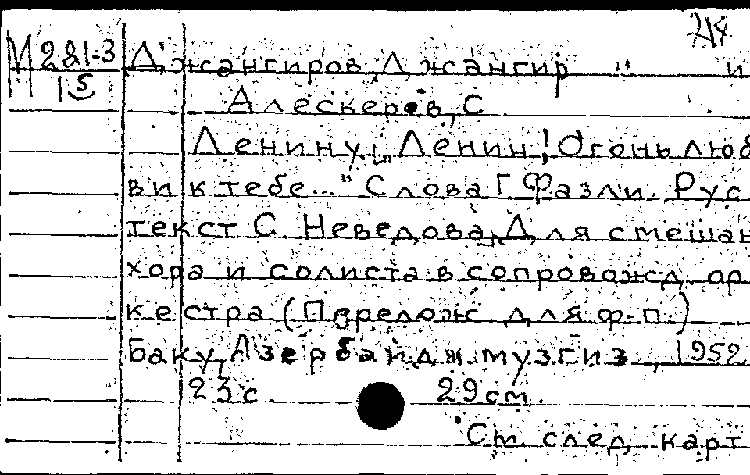 М 221-3
15
Джангиров, Джангир и
Алескеров, С
Ленину. „Ленин! Огонь люб
ви к тебе..." Слова Г Фазли. Рус
текст С Неведова, Для смешан
хора и солиста в сопровожд ор
кестра (Перелож для ф-п)
Баку, Азербайдж. музгиз, 1952
23 с. 29 см.
См след карт